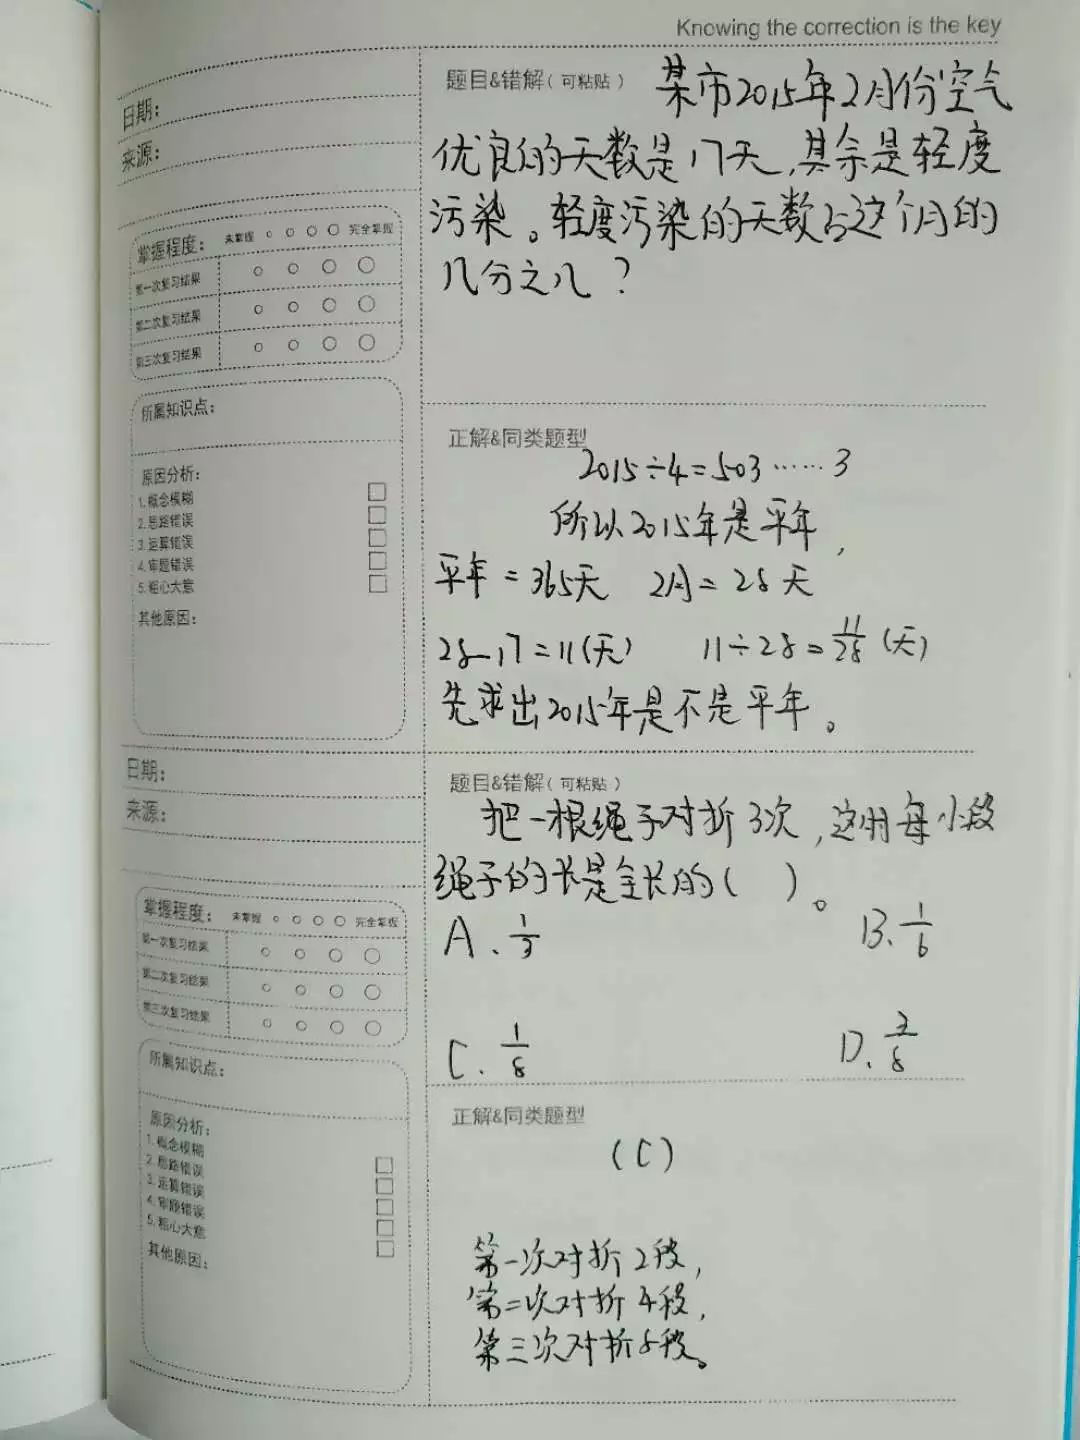 Knowing the correction is the key
日期：
来源：
掌握程度： 未掌握 完全掌握
第一次复习结果
第二次复习结果
第三次复习结果
所属知识点：
原因分析：
1.概念模糊
2.思路错误
3.运算错误
4.审题错误
5.粗心大意
其他原因：
题目&错解（可粘贴） 某市2015年2月份空气
优良的天数是17天,其余是轻度
污染。轻度污染的天数占这个月的
几分之几？
正解&同类题型
2015÷4=503……3
所以2015年是平年，
平年=365天 2月=28天
28-17=11(天) 11÷28=11/28(天)
先求出2015年是不是平年。
日期：
来源：
掌握程度： 未掌握 完全掌握
第一次复习结果
第二次复习结果
第三次复习结果
所属知识点：
原因分析：
1.概念模糊
2.思路错误
3.运算错误
4.审题错误
5.粗心大意
其他原因：
题目&错解（可粘贴）
把一根绳子对折3次，这时每小段
绳子的长是全长的( )。
A、1/3 B、1/6
C、1/8 D、3/8
正解&同类题型
(C)
第一次对折2段，
第二次对折4段，
第三次对折8段。